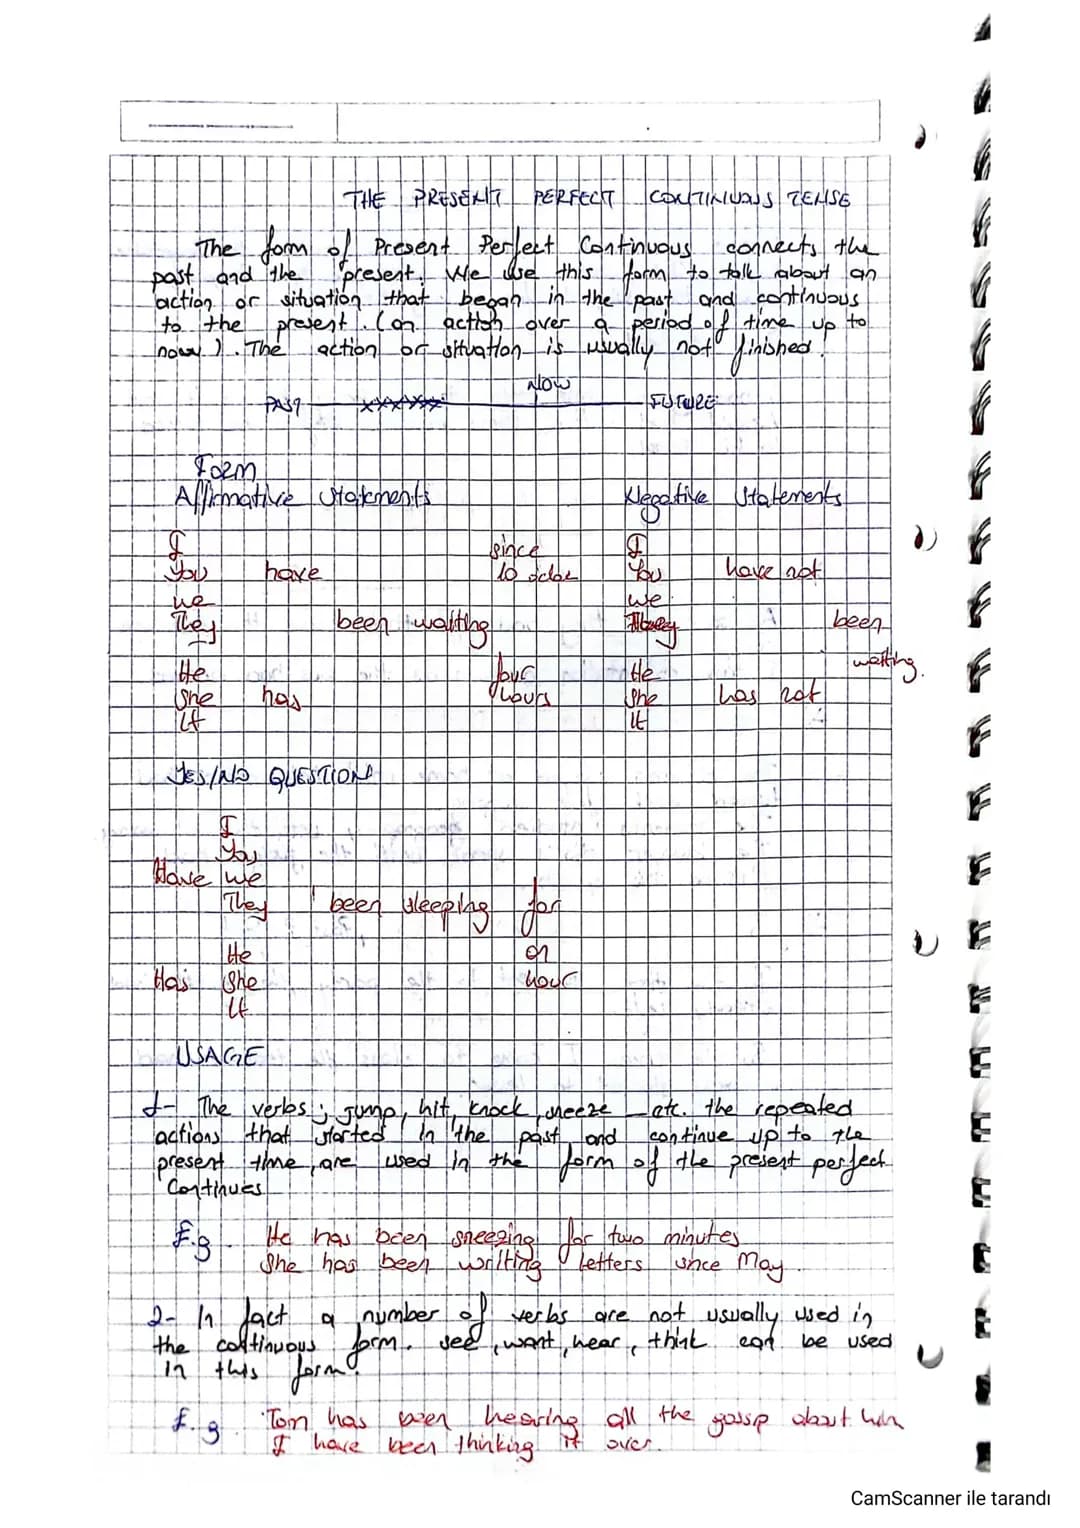 THE PRESENT PERFECT CONTINUOUS TENSE
The form of Present Perfect Continuous connects the
past and the present. We use this form to talk about an
action or situation that began in the past and continuous
to the present. (an action over a period of time up to
now). The action or situation is usually not finished.
NOW
PAST xxxxxxx FUTURE
Form
Affirmative Statements Negative Statements
I since I
You have 10 You have not
we we
They been waiting They been
waiting.
He four He
She has hours She has not
It It
YES/NO QUESTION
I
You
Have we
They been sleeping for
He an
Has She hour
It
USAGE
1- The verbs; jump, hit, knock, sneeze etc. the repeated
actions that started in the past and continue up to the
present time, are used in the form of the present perfect
Continues
E.g He has been sneezing for two minutes
She has been writing letters since May.
2- In fact a number of verbs are not usually used in
the continuous form. see, want, hear, think can be used
in this form.
E.g. Tom has been hearing all the gossip about him
I have been thinking it over.
CamScanner ile tarandı